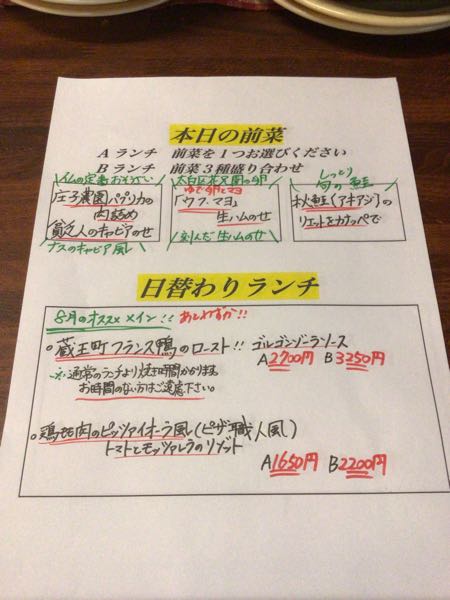 本日の前菜
A ランチ 前菜を1つお選びください
B ランチ 前菜3種盛り合わせ
庄子農園パプリカの
肉詰め
貧乏人のキャビアのせ
ナスのキャビア風
太白区茂庭の卵
ゆで卵とマヨ
「ウフ・マヨ」
生ハムのせ
刻んだ生ハムのせ
しっとり
旬の鮭
秋鮭(アキアジ)の
リエットをカナッペで
日替わりランチ
8月のオススメメイン!! あとわずか!!
。蔵王町フランス鴨のロースト!! ゴルゴンゾーラソース
A2700円 B3250円
※通常のランチより焼き時間かかります
お時間のない方はご遠慮下さい。
。鶏もも肉のピッツァイオーラ風(ピザ職人風)
トマトとモッツァレラのリゾット
A1650円 B2200円